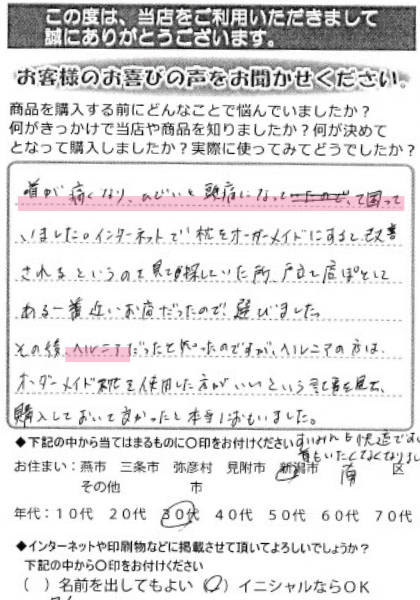 この度は、当店をご利用いただきまして
誠にありがとうございます。
お客様のお喜びの声をお聞かせください。
商品を購入する前にどんなことで悩んでいましたか？
何がきっかけで当店や商品を知りましたか？何が決めて
となって購入しましたか？実際に使ってみてどうでしたか？
首が痛くなり、ひどいと頭痛になって て困って
いました。インターネットで枕をオーダーメイドにすると改善
されるというのを見て探していた所、
ある一番近いお店だったので選びました。
その後、ヘルニアだったと知ったのですが、ヘルニアの方は、
オーダーメイド枕を使用した方がいいという を見て、
購入しておいて良かったと本当におもいました。
◆下記の中から当てはまるものに○印をお付けください
すいみんも快適です
首もいたくなくなりまし
お住まい：燕市 三条市 弥彦村 見附市 新潟市 南 区
その他 市
年代：10代 20代 30代 40代 50代 60代 70代
◆インターネットや印刷物などに掲載させて頂いてよろしいでしょうか？
下記の中から○印をお付けください
( ) 名前を出してもよい (○) イニシャルならOK